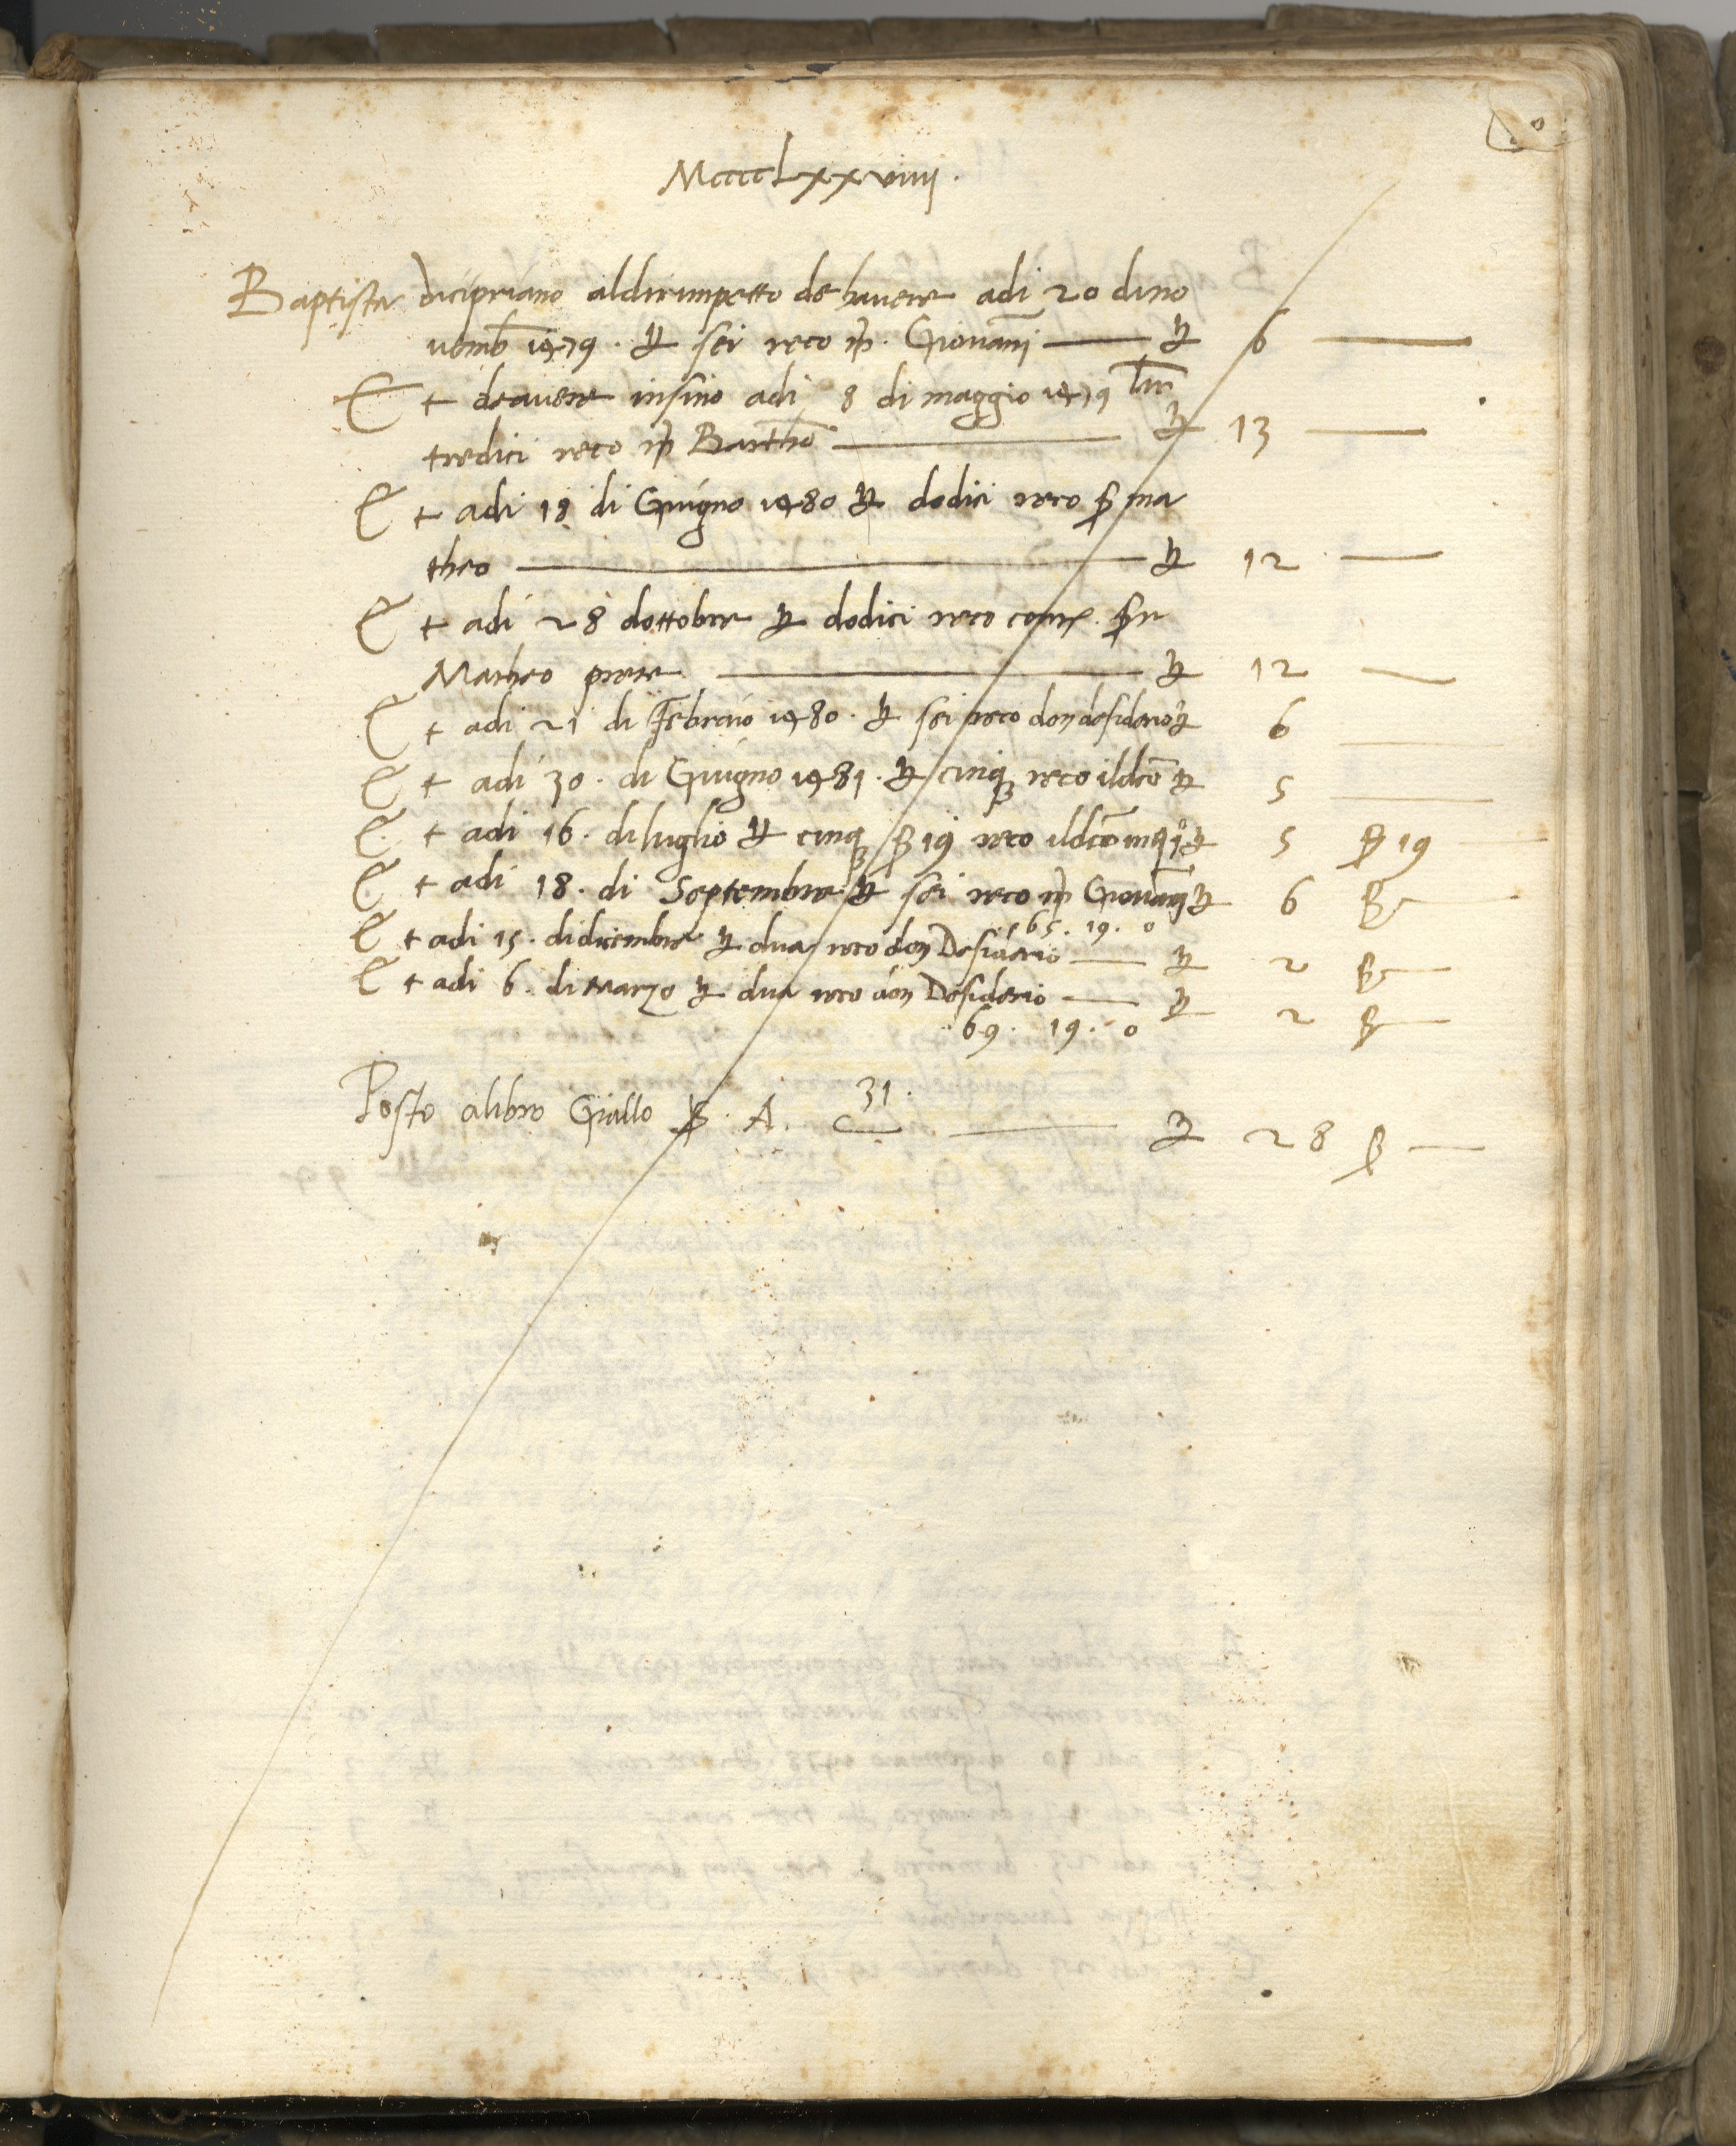 MccccLxxviiii.
Baptista dicipriano aldirimpetto de havere adi 20 dino
uemb 1479. ₶ sei reco ip. Giovanj — ₶ 6 —
E + deavere insino adi 8 di maggio 1479 lir
tredici reco ip Bartho — ₶ 13 —
E + adi 18 di Giugno 1480 ₶ dodici reco p ma
theo — ₶ 12 —
E + adi 28 dottobre ₶ dodici reco
Matheo prete — ₶ 12 —
E + adi 21 di Febraio 1480. ₶ sei reco don desiderio ₶ 6 —
E + adi 30. di Giugno 1481. ₶ cinq reco ildco ₶ 5 —
E + adi 16. di luglio ₶ cinq β 19 reco ildco ₶ 5 β 19 —
E + adi 18. di Septembre ₶ sei reco ip Giovanj ₶ 6 β —
65. 19. 0
E + adi 15. didicembre ₶ dua reco don Desiderio — ₶ 2 β —
E + adi 6. di Marzo ₶ dua reco don Desiderio — ₶ 2 β —
69. 19. 0
Posto alibro Giallo β. A. 31. — ₶ 28 β —